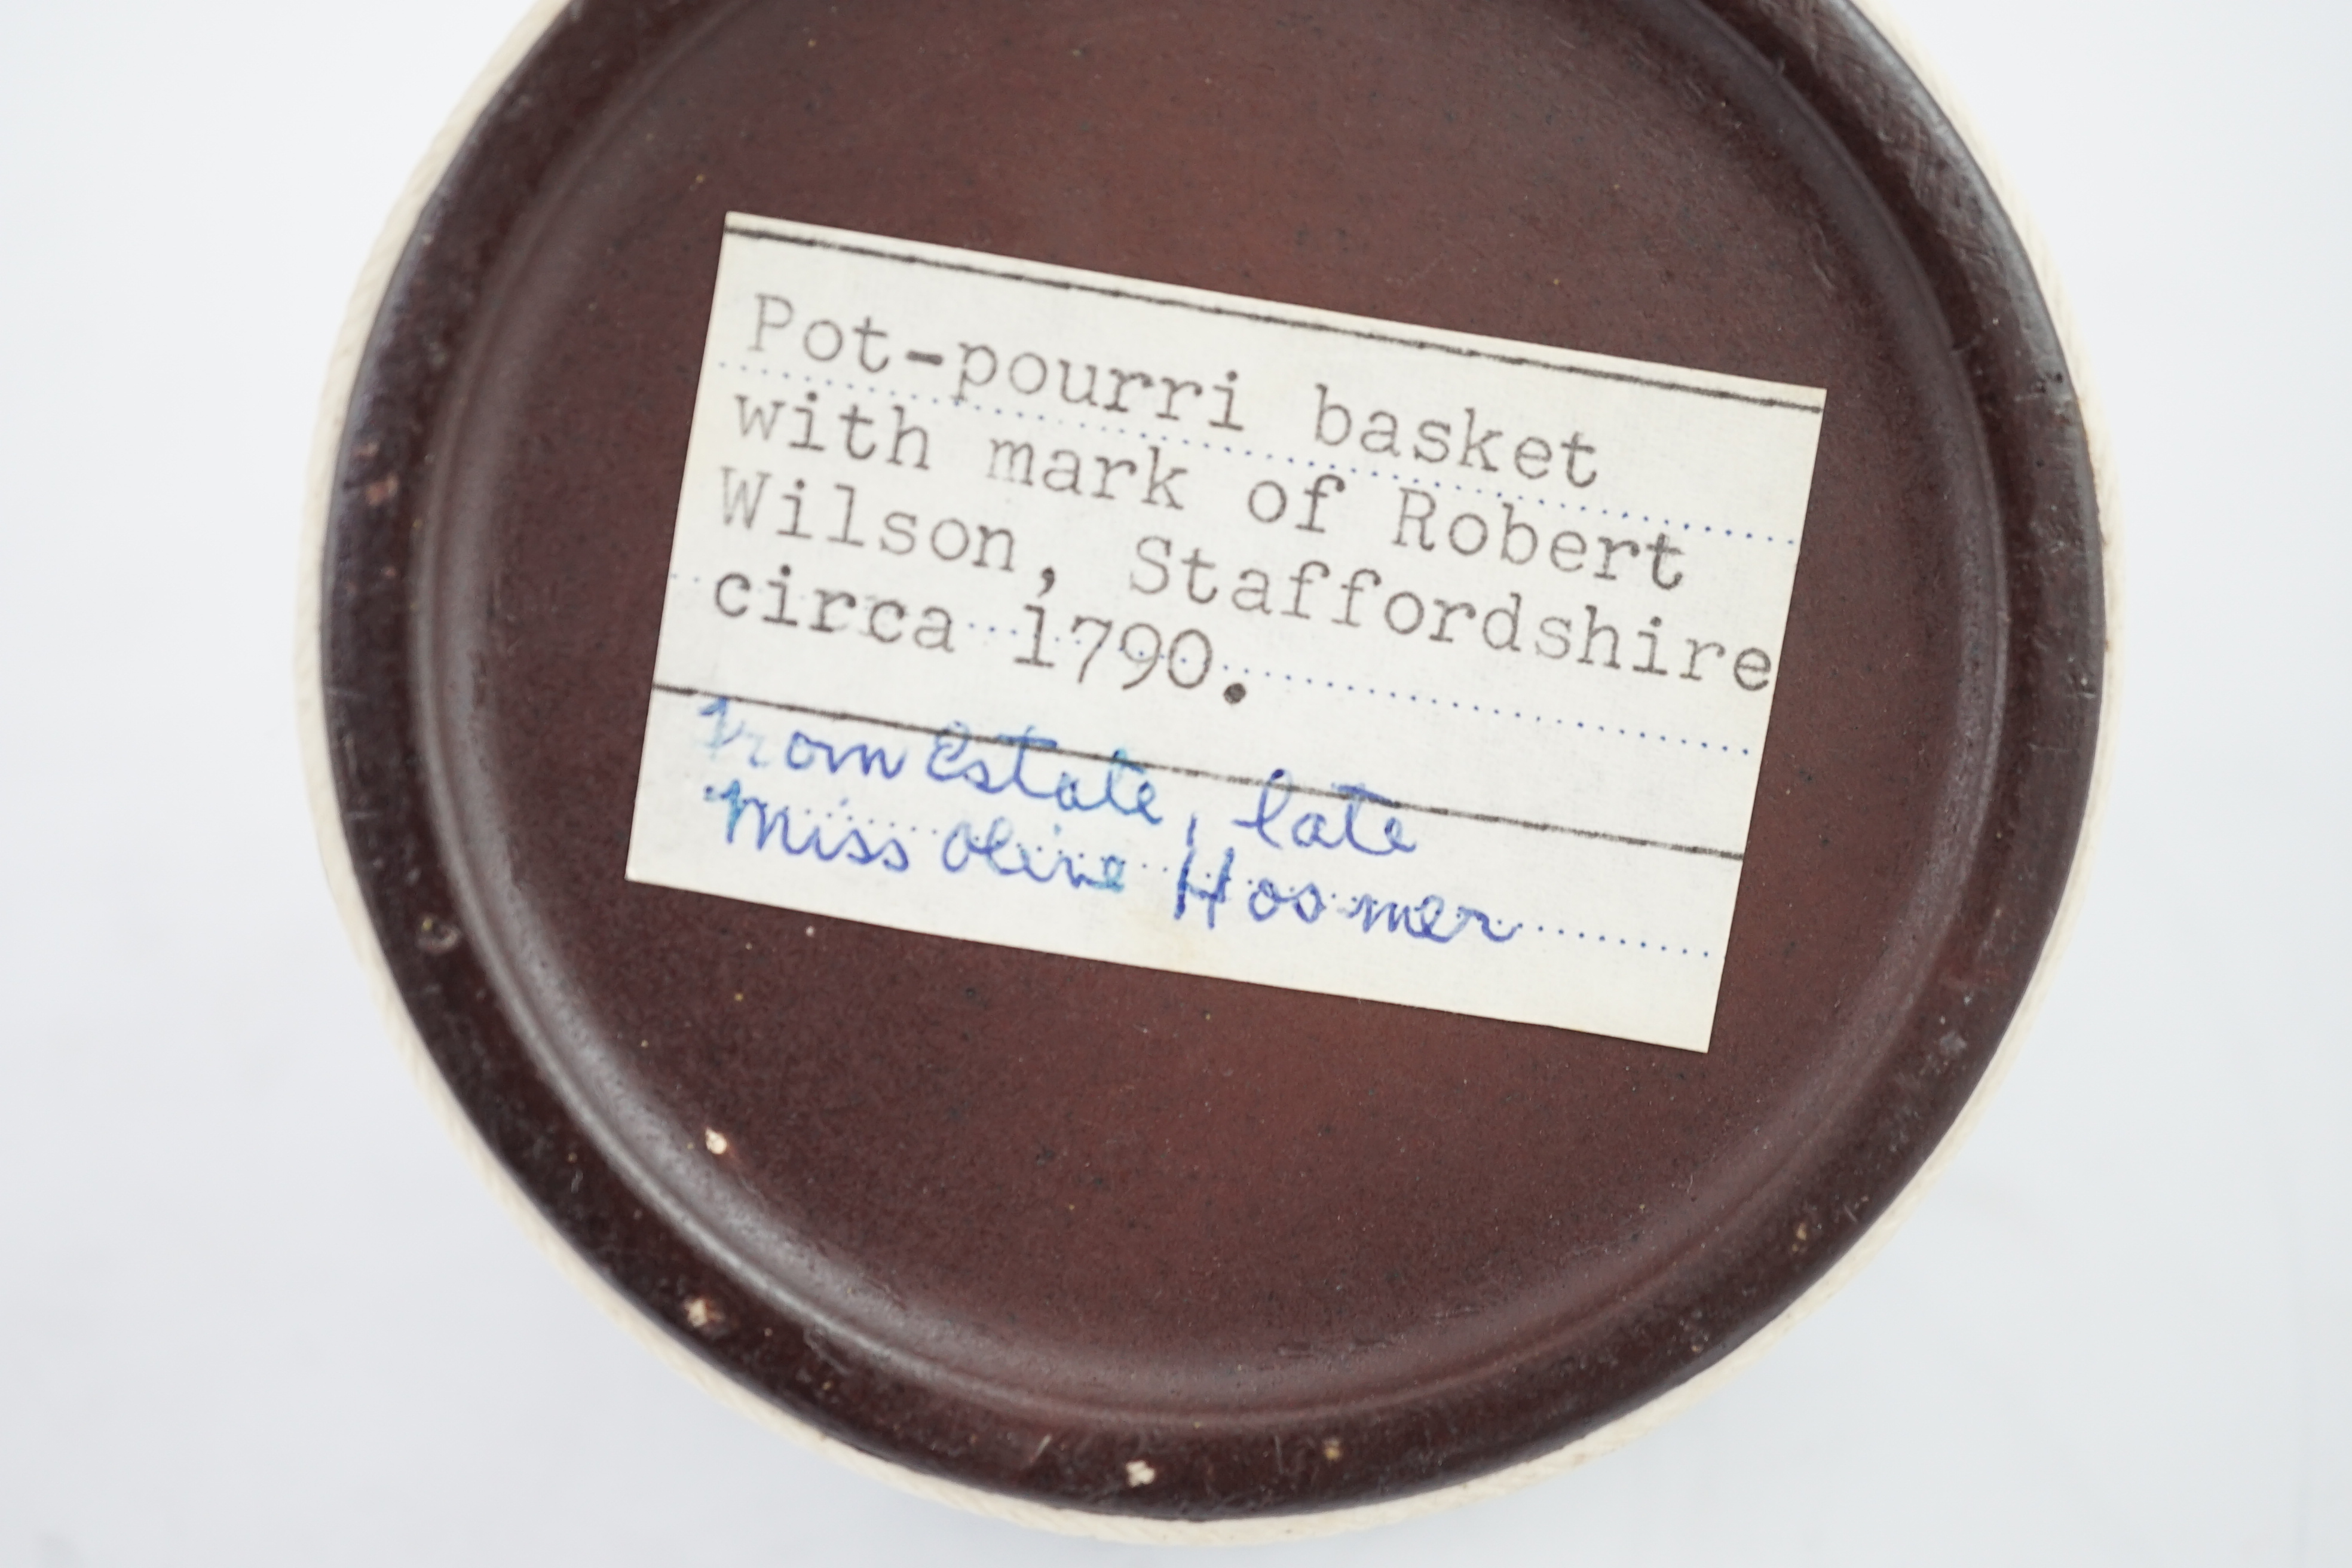 Pot-pourri basket
with mark of Robert
Wilson, Staffordshire
circa 1790.
from Estate, late
Miss Olive Hosmer